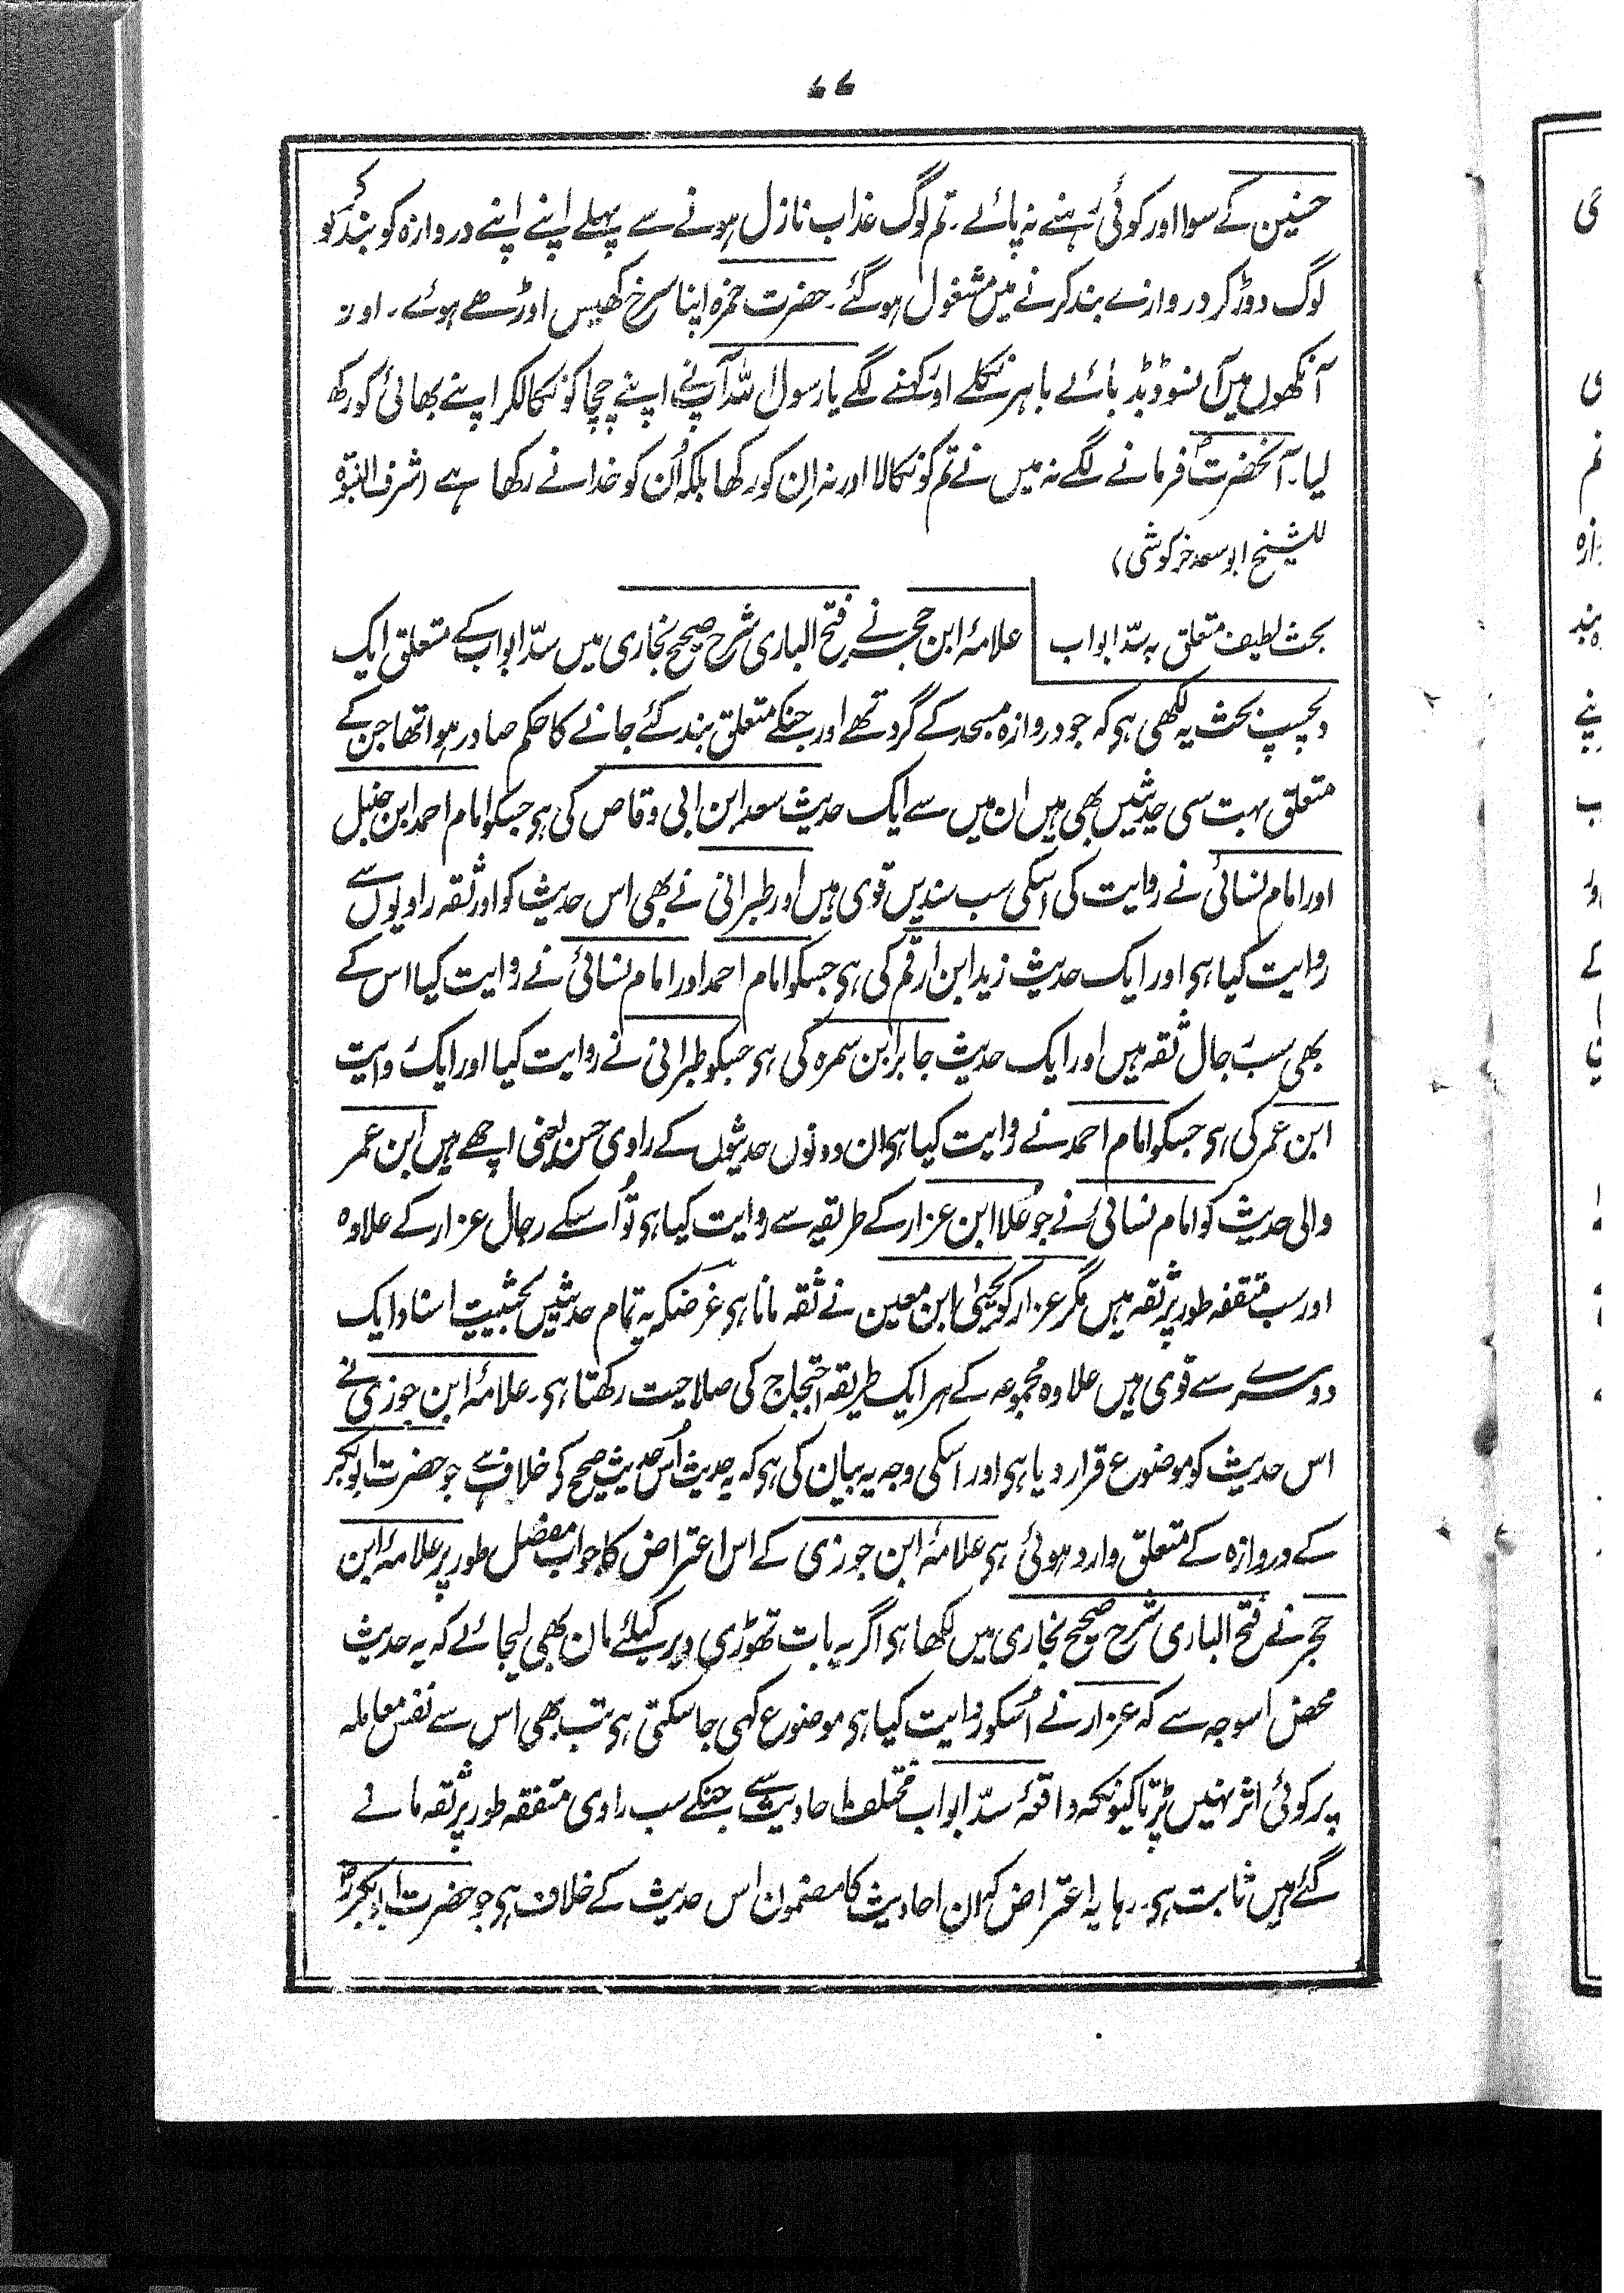 ۷۷
حسنین کے سوا اور کوئی رہنے نہ پائے۔ تم لوگ عذاب نازل ہونے سے پہلے اپنے اپنے دروازہ کو بند کر لو
لوگ دوڑ کر دروازے بند کرنے میں مشغول ہو گئے۔ حضرت حمزہ اپنا سرخ کھیس اوڑھے ہوئے۔ اور
آنکھوں میں آنسو ڈبڈبائے باہر نکلے اور کہنے لگے یا رسول اللہ آپنے اپنے چچا کو نکالکر اپنے بھائی کو رکھ
لیا۔ آنحضرتؐ فرمانے لگے نہ میں نے تم کو نکالا اور نہ اِن کو رکھا بلکہ اُن کو خدا نے رکھا ہے (شرف النبوۃ
للشیخ ابو سعد خرکوشی)
بحث لطیف متعلق بہ سدّ ابواب
علامۂ ابن حجر نے فتح الباری شرح صحیح بخاری میں سدّ ابواب کے متعلق ایک
دلچسپ بحث یہ لکھی ہی کہ جو دروازہ مسجد کے گرد تھے اور جنکے متعلق بند کئے جانے کا حکم صادر ہوا تھا جن کے
متعلق بہت سی حدیثیں بھی ہیں ان میں سے ایک حدیث سعد ابن ابی وقاص کی ہی جسکو امام احمد ابن حنبل
اور امام نسائی نے روایت کی اسکی سب سندیں قوی ہیں اور طبرانی نے بھی اس حدیث کو اور ثقہ راویوں سے
روایت کیا ہی اور ایک حدیث زید ابن ارقم کی ہی جسکو امام احمد اور امام نسائی نے روایت کیا اس کے
بھی سب رجال ثقہ ہیں اور ایک حدیث جابر ابن سمرہ کی ہی جسکو طبرانی نے روایت کیا اور ایک روایت
ابن عمر کی ہی جسکو امام احمد نے روایت کیا ہی ان دونوں حدیثوں کے راوی حسن یعنی اچھے ہیں ابن عمر
والی حدیث کو امام نسائی نے جو عُلا ابن عزار کے طریقہ سے روایت کیا ہی تو اُسکے رجال عزار کے علاوہ
اور سب متفقہ طور پر ثقہ ہیں مگر عزار کو یحییٰ ابن معین نے ثقہ مانا ہی غرضکہ یہ تمام حدیثیں بحیثیت اسناد ایک
دوسرے سے قوی ہیں علاوہ مجموعہ کے ہر ایک طریقہ احتجاج کی صلاحیت رکھتا ہی۔ علامۂ ابن جوزی نے
اس حدیث کو موضوع قرار دیا ہی اور اسکی وجہ یہ بیان کی ہی کہ یہ حدیث اُس حدیث صحیح کے خلاف ہے جو حضرت ابوبکر
کے دروازہ کے متعلق وارد ہوئی ہی علامۂ ابن جوزی کے اس اعتراض کا جواب مفصل طور پر علامۂ ابن
حجر نے فتح الباری شرح صحیح بخاری میں لکھا ہی اگر یہ بات تھوڑی دیر کیلئے مان بھی لیجائے کہ یہ حدیث
محض اسوجہ سے کہ عزار نے اُسکو روایت کیا ہی موضوع کہی جا سکتی ہی تب بھی اس سے نفس معاملہ
پر کوئی اثر نہیں پڑتا کیونکہ واقعۂ سدّ ابواب مختلف احادیث سے جنکے سب راوی متفقہ طور پر ثقہ مانے
گئے ہیں ثابت ہی۔ رہا یہ اعتراض کہ ان احادیث کا مضمون اس حدیث کے خلاف ہی جو حضرت ابوبکرؓ